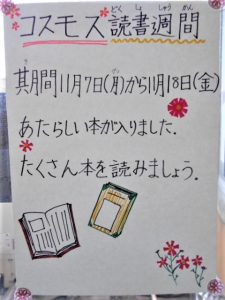 コスモス読書週間
其期間11月7日(月)から11月18日(金)
あたらしい本が入りました.
たくさん本を読みましょう.